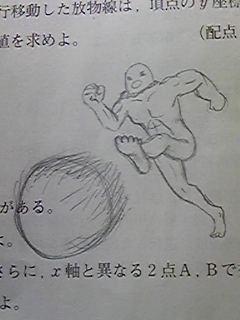 行移動した放物線は，頂点のy座標
値を求めよ。 (配点
がある。
よ。
さらに，x軸と異なる2点A，Bで
よ。